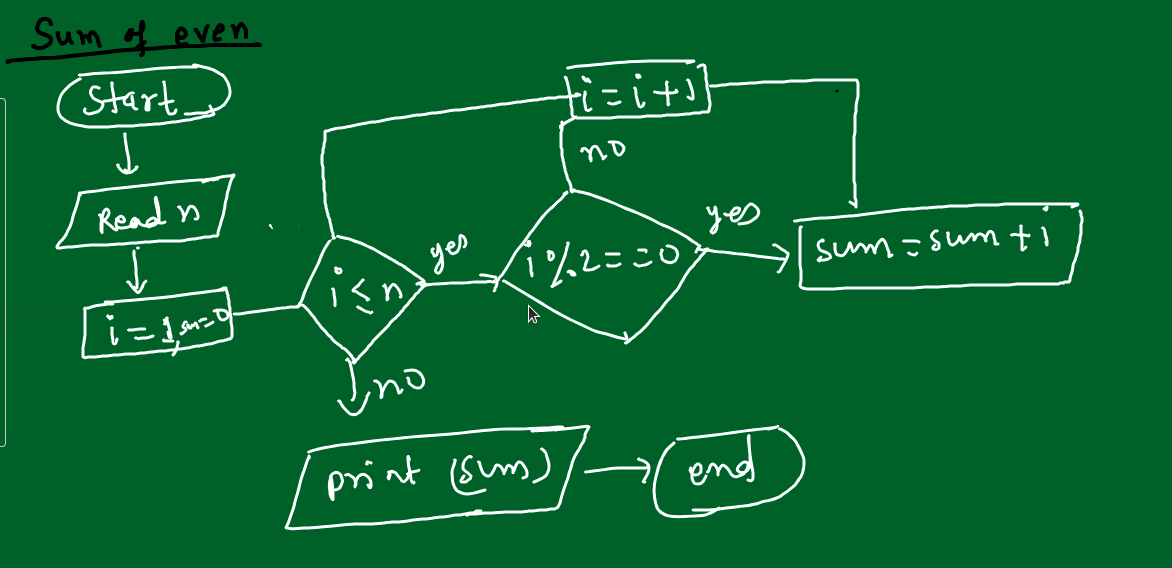 Sum of even
Start
Read n
i = 1, su=0
i ≤ n
yes
no
i % 2 == 0
no
yes
i = i + 1
sum = sum + i
print (sum)
end